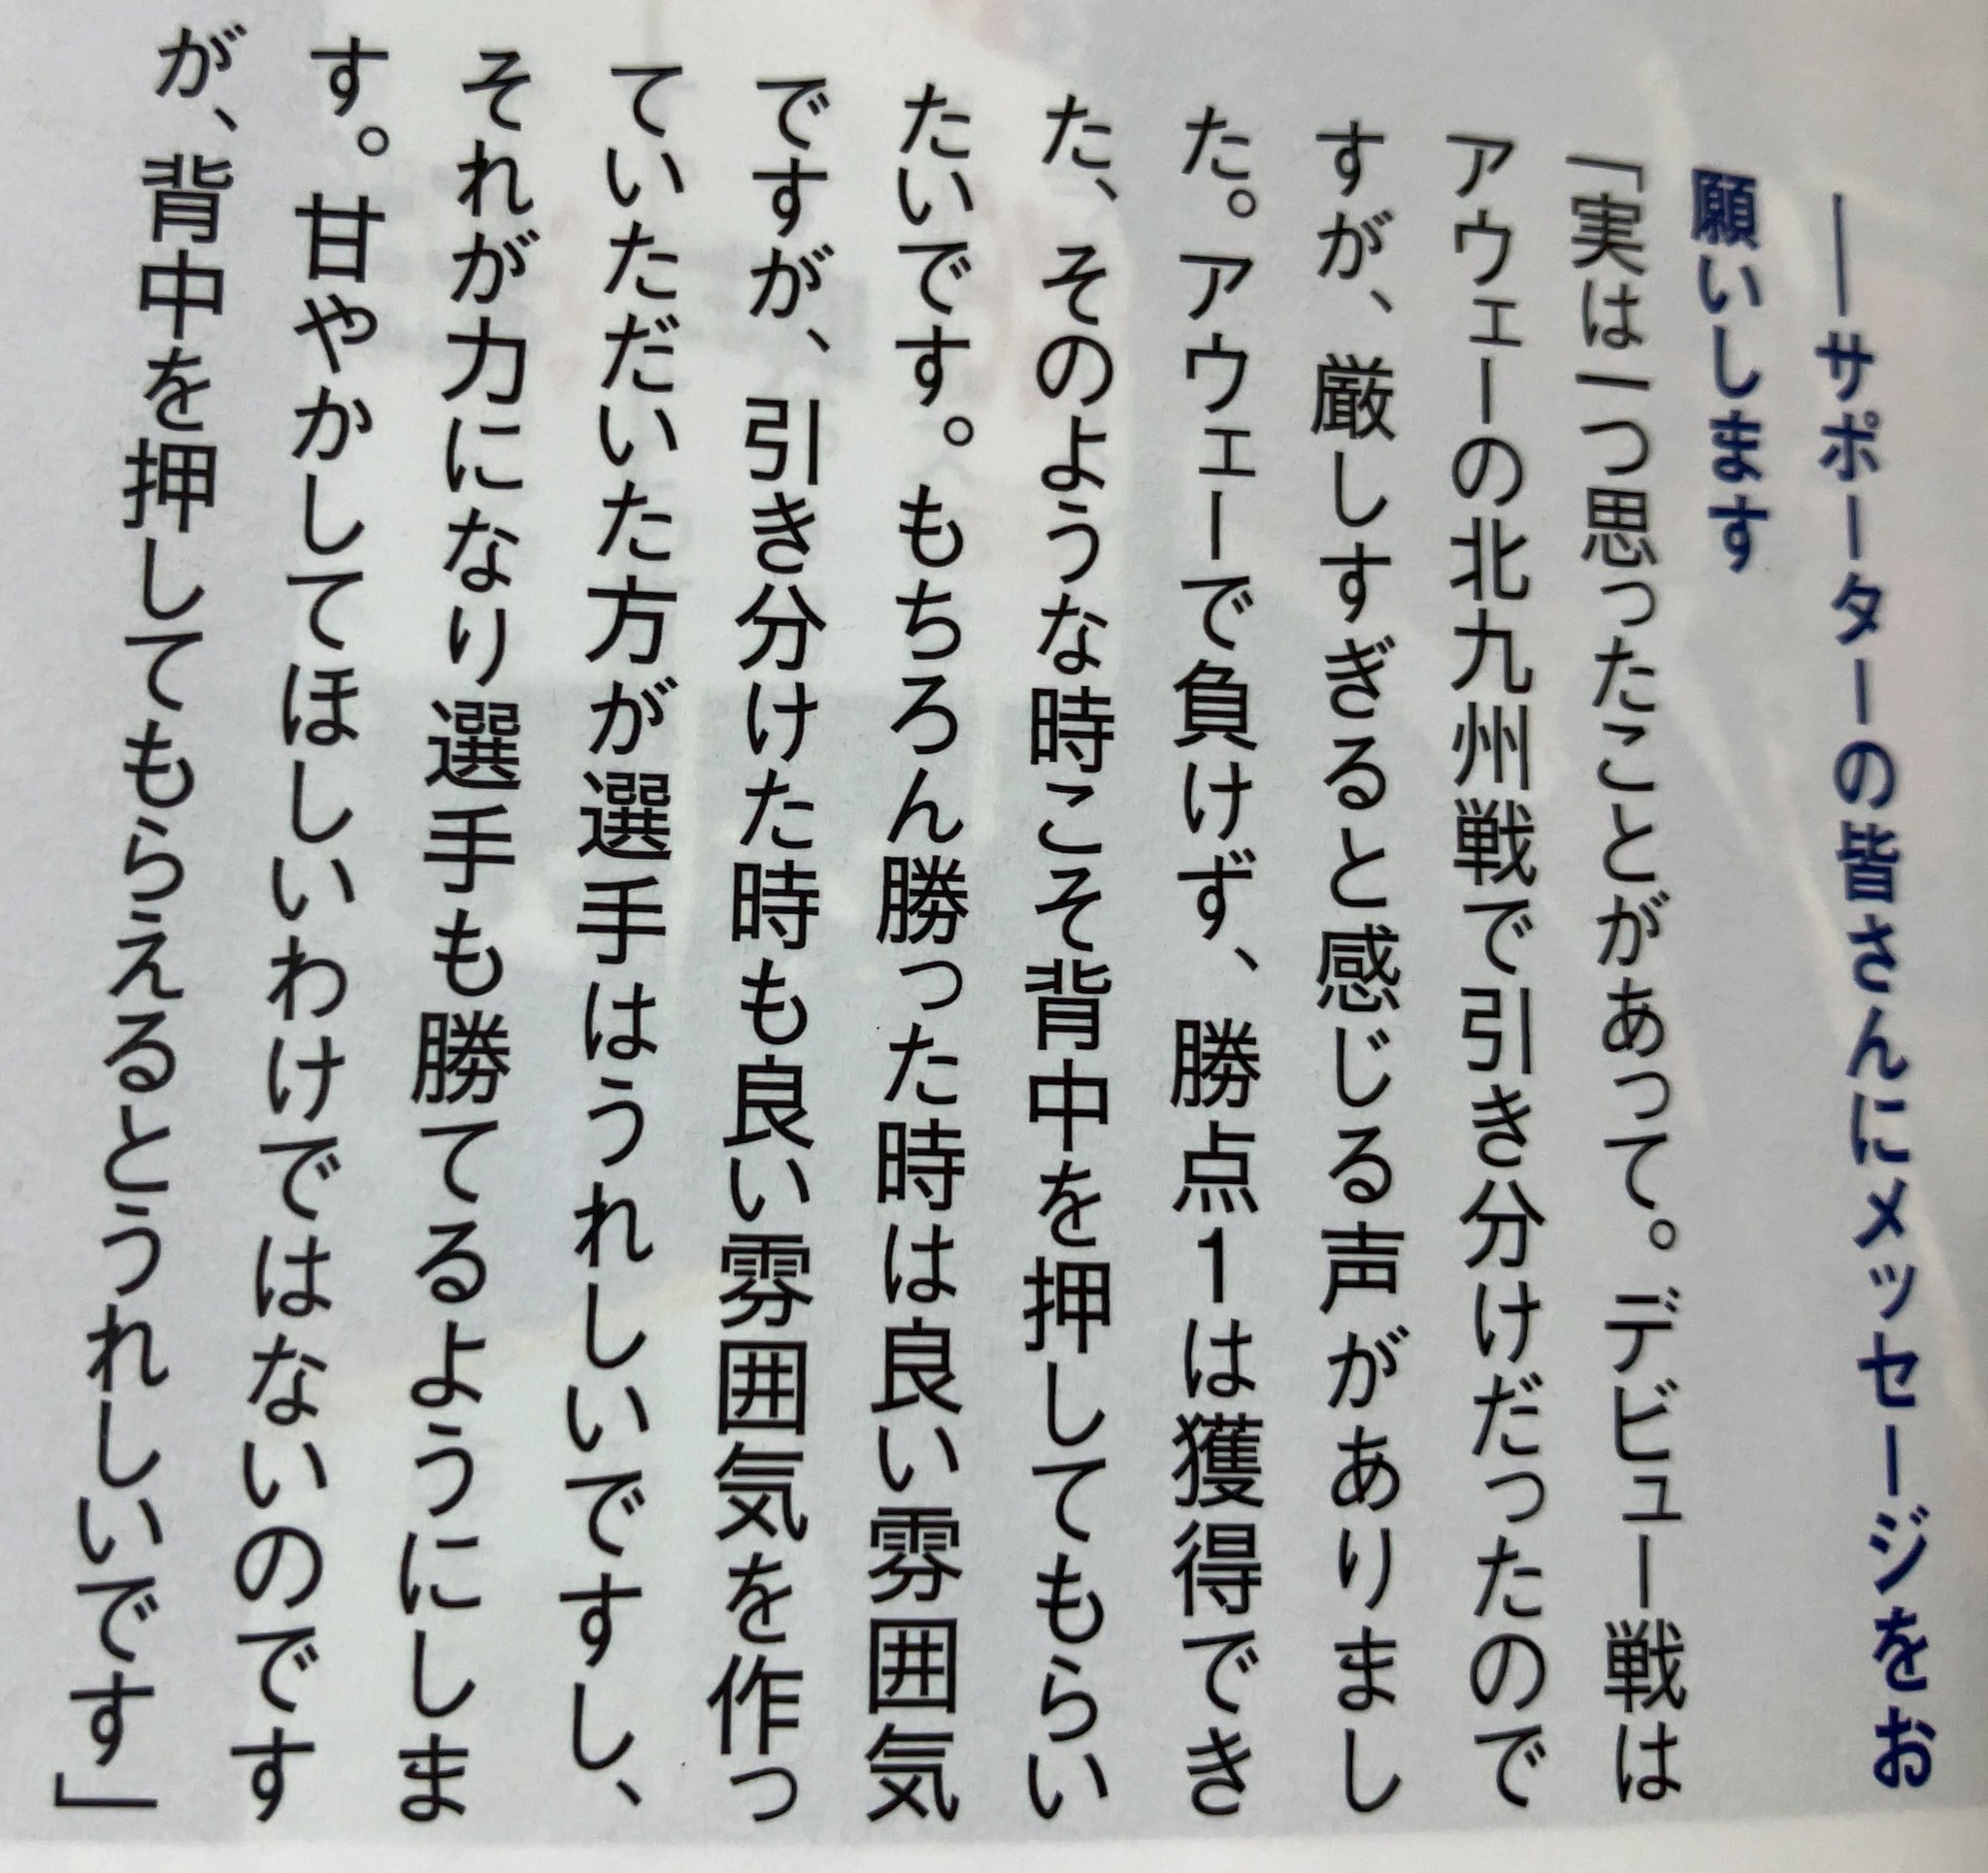 ――サポーターの皆さんにメッセージをお
願いします
「実は一つ思ったことがあって。デビュー戦は
アウェーの北九州戦で引き分けだったので
すが、厳しすぎると感じる声がありまし
た。アウェーで負けず、勝点1は獲得でき
た、そのような時こそ背中を押してもらい
たいです。もちろん勝った時は良い雰囲気
ですが、引き分けた時も良い雰囲気を作っ
ていただいた方が選手はうれしいですし、
それが力になり選手も勝てるようにしま
す。甘やかしてほしいわけではないのです
が、背中を押してもらえるとうれしいです」